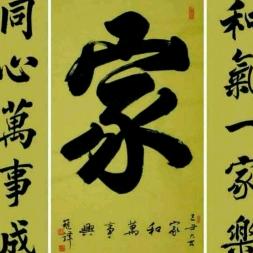 和氣一家樂
家
家和萬事興
同心萬事成